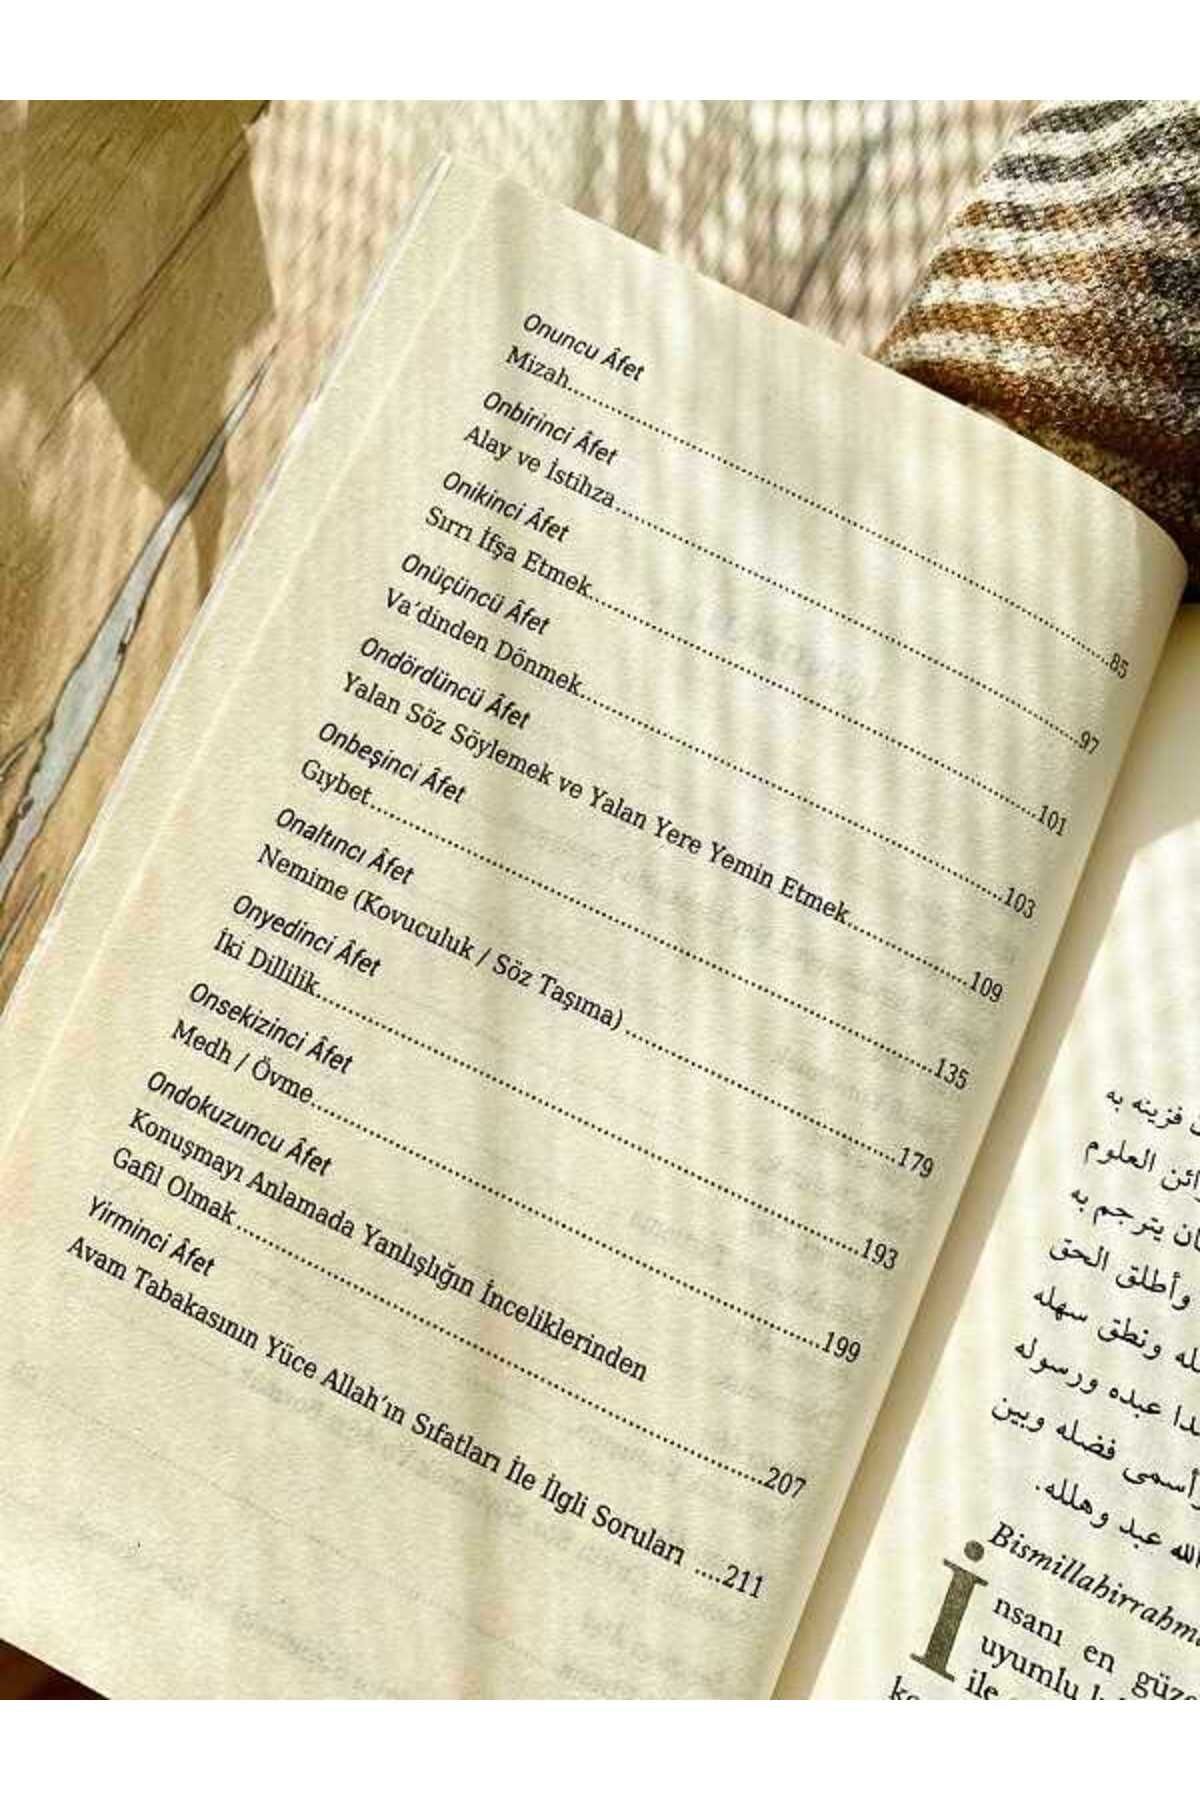 Onuncu Âfet
Mizah..........85
Onbirinci Âfet
Alay ve İstihza..........97
Onikinci Âfet
Sırrı İfşa Etmek..........101
Onüçüncü Âfet
Va'dinden Dönmek..........103
Ondördüncü Âfet
Yalan Söz Söylemek ve Yalan Yere Yemin Etmek..........109
Onbeşinci Âfet
Gıybet..........135
Onaltıncı Âfet
Nemime (Kovuculuk / Söz Taşıma)..........179
Onyedinci Âfet
İki Dillilik..........193
Onsekizinci Âfet
Medh / Övme..........199
Ondokuzuncu Âfet
Konuşmayı Anlamada Yanlışlığın İnceliklerinden
Gafil Olmak..........207
Yirminci Âfet
Avam Tabakasının Yüce Allah'ın Sıfatları İle İlgli Soruları ....211
فزينه به
العلوم
يترجم به
وأطلق الحق
ونطق سهله
عبده ورسوله
أسمى فضله وبين
الله عبد وهلله.
Bismillahirrahm
İnsanı en güze
uyumlu
ile